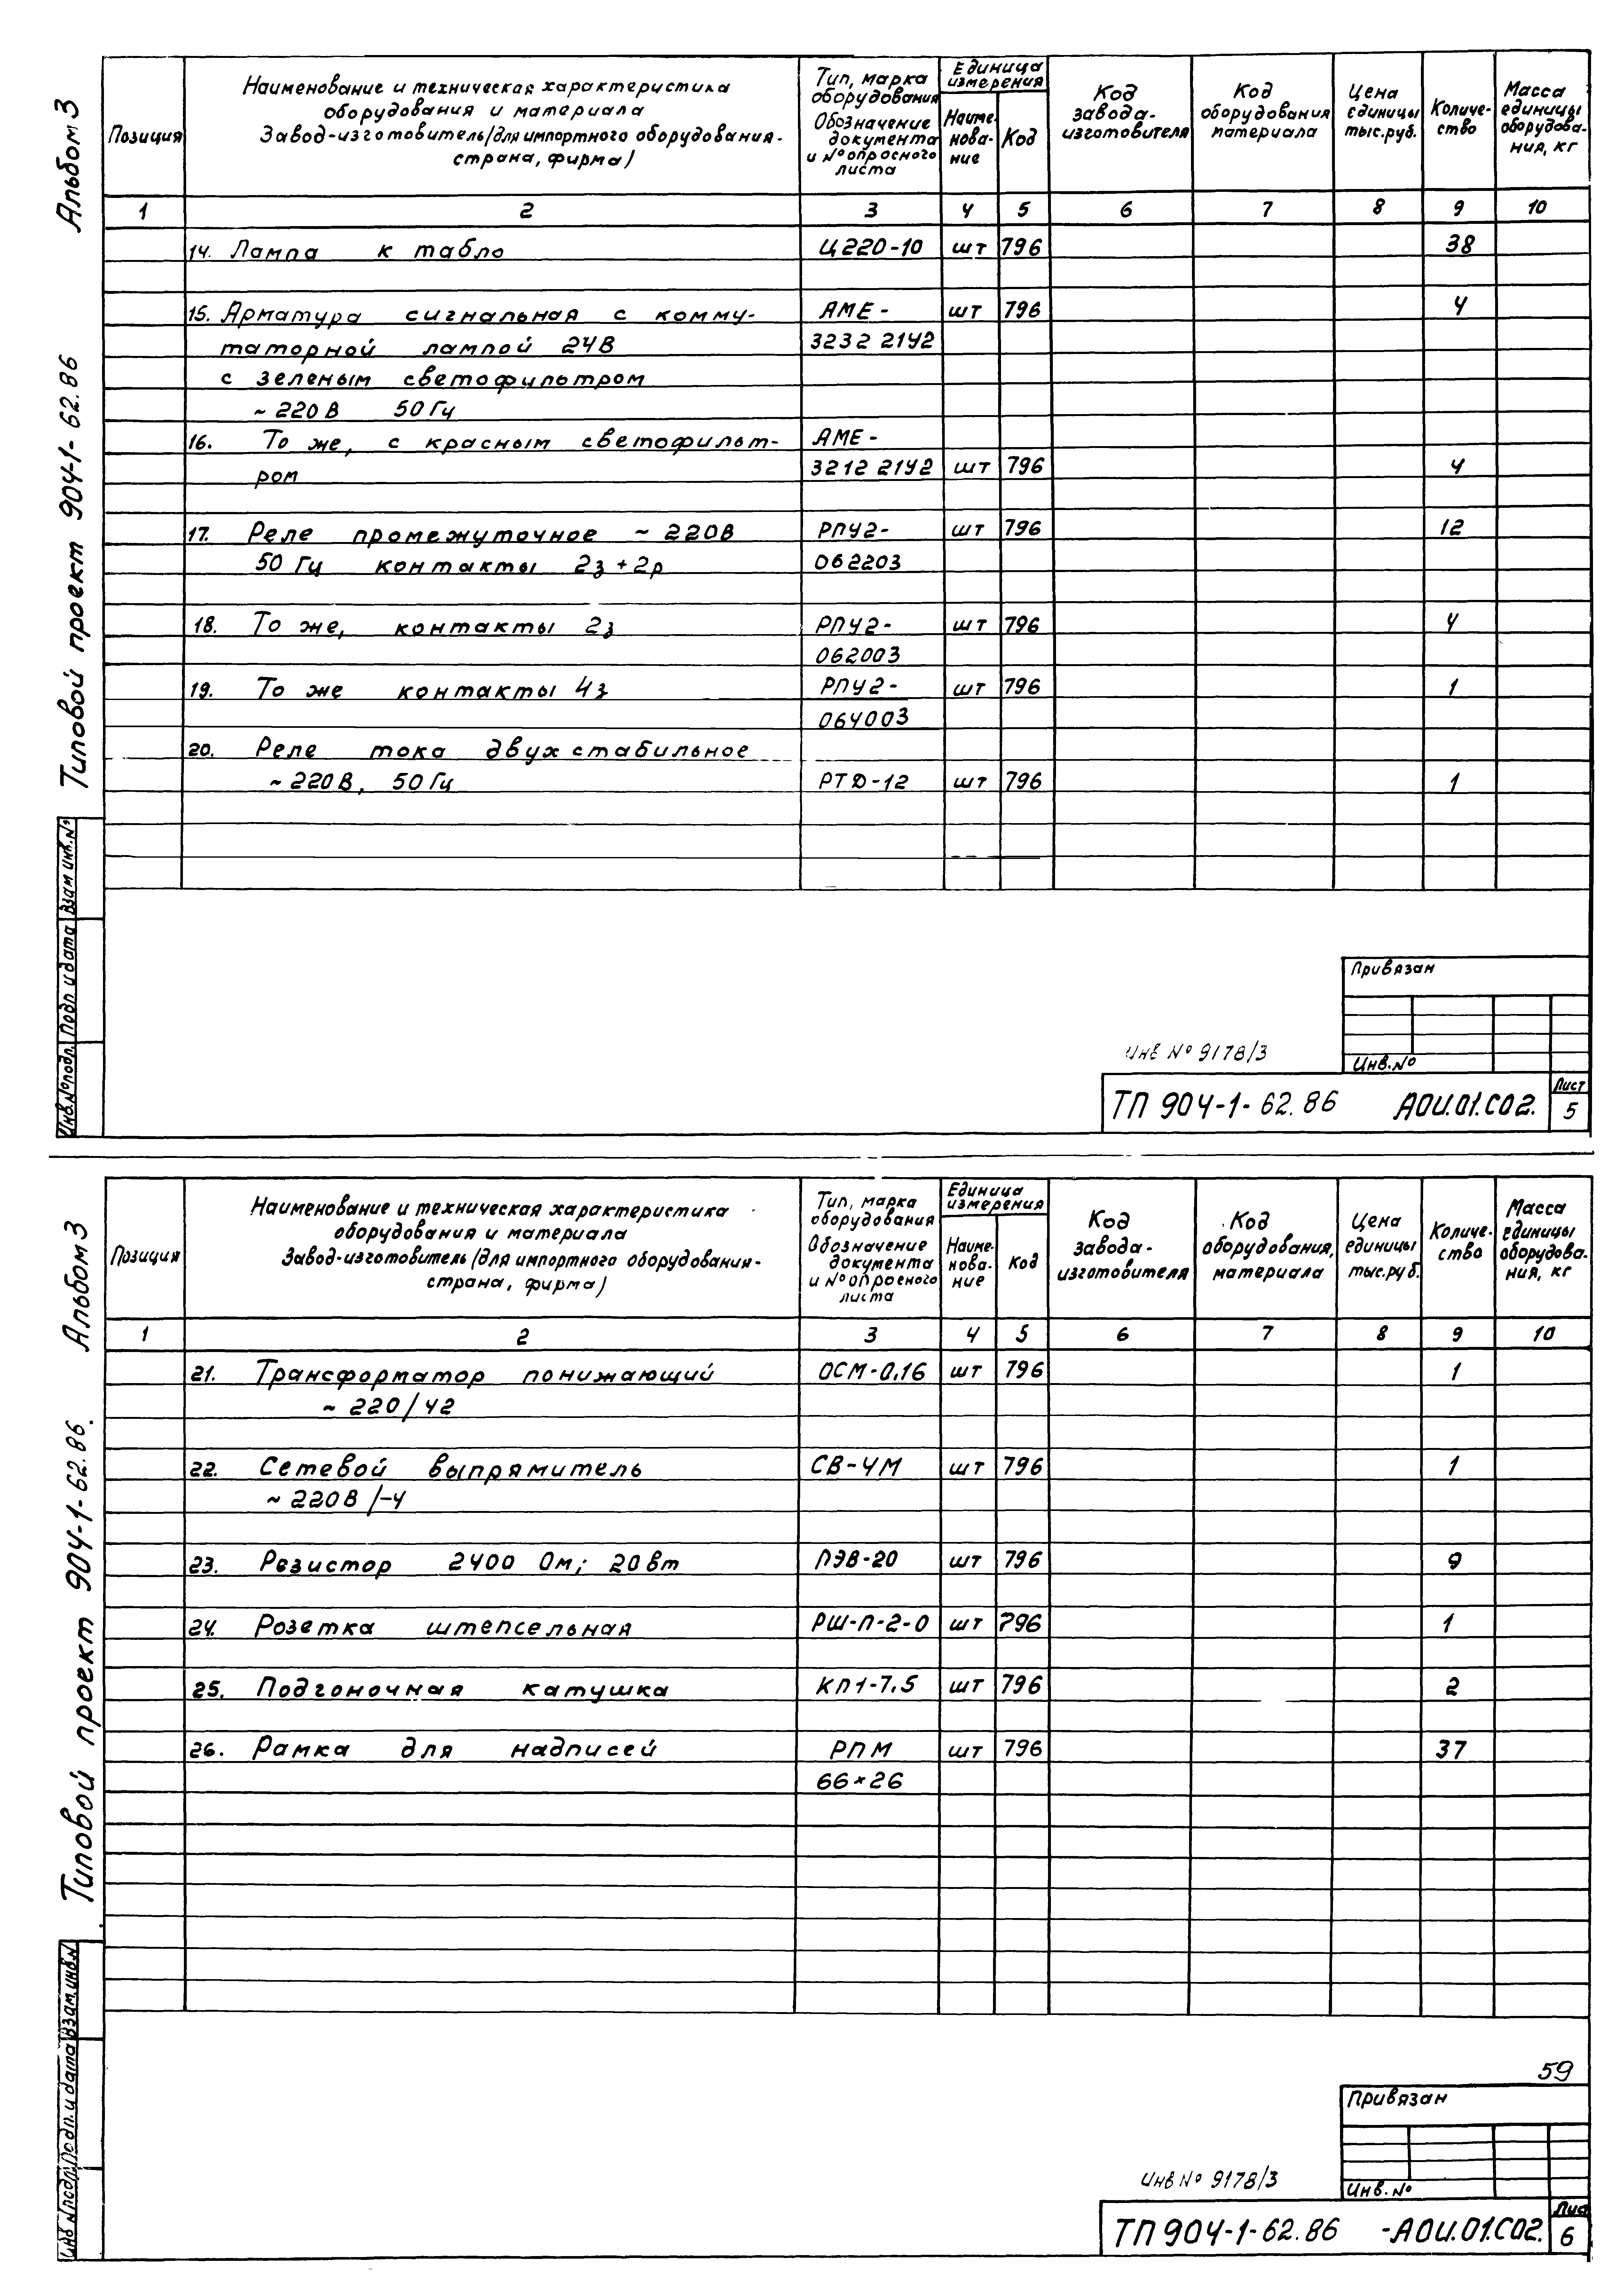 Альбом 3
Типовой проект 904-1-62.86
Взам инв.№
Подп и дата
Инв.№ подл.
Позиция
Наименование и техническая характеристика
оборудования и материала
Завод-изготовитель (для импортного оборудования-
страна, фирма)
Тип, марка
оборудования
Обозначение
документа
и № опросного
листа
Единица
измерения
Наиме-
нова-
ние
Код
Код
завода-
изготовителя
Код
оборудования
материала
Цена
единицы
тыс.руб.
Количе-
ство
Масса
единицы
оборудова-
ния, кг
1 2 3 4 5 6 7 8 9 10
14. Лампа к табло Ц220-10 шт 796 38
15. Арматура сигнальная с комму- АМЕ- шт 796 4
таторной лампой 24В 3232 21У2
с зеленым светофильтром
~ 220В 50Гц
16. То же, с красным светофильт- АМЕ-
ром 3212 21У2 шт 796 4
17. Реле промежуточное ~ 220В РПУ2- шт 796 12
50 Гц контакты 2з + 2р 062203
18. То же, контакты 2з РПУ2- шт 796 4
062003
19. То же контакты 4з РПУ2- шт 796 1
064003
20. Реле тока двухстабильное
~ 220В, 50Гц РТД-12 шт 796 1
Привязан
Инв.№
Инв № 9178/3
ТП 904-1-62.86 АОИ.01.СО2.
Лист
5
Альбом 3
Типовой проект 904-1-62.86.
Взам.инв.№
Подп. и дата
Инв № подл.
Позиция
Наименование и техническая характеристика
оборудования и материала
Завод-изготовитель (для импортного оборудования-
страна, фирма)
Тип, марка
оборудования
Обозначение
документа
и № опросного
листа
Единица
измерения
Наиме-
нова-
ние
Код
Код
завода-
изготовителя
Код
оборудования,
материала
Цена
единицы
тыс.руб.
Количе-
ство
Масса
единицы
оборудова-
ния, кг
1 2 3 4 5 6 7 8 9 10
21. Трансформатор понижающий ОСМ-0,16 шт 796 1
~ 220/42
22. Сетевой выпрямитель СВ-4М шт 796 1
~ 220В/-4
23. Резистор 2400 Ом; 20вт ПЭВ-20 шт 796 9
24. Розетка штепсельная РШ-П-2-0 шт 796 1
25. Подгоночная катушка КП1-7,5 шт 796 2
26. Рамка для надписей РПМ шт 796 37
66×26
59
Привязан
Инв.№
Инв № 9178/3
ТП 904-1-62.86 -АОИ.01.СО2.
Лист
6